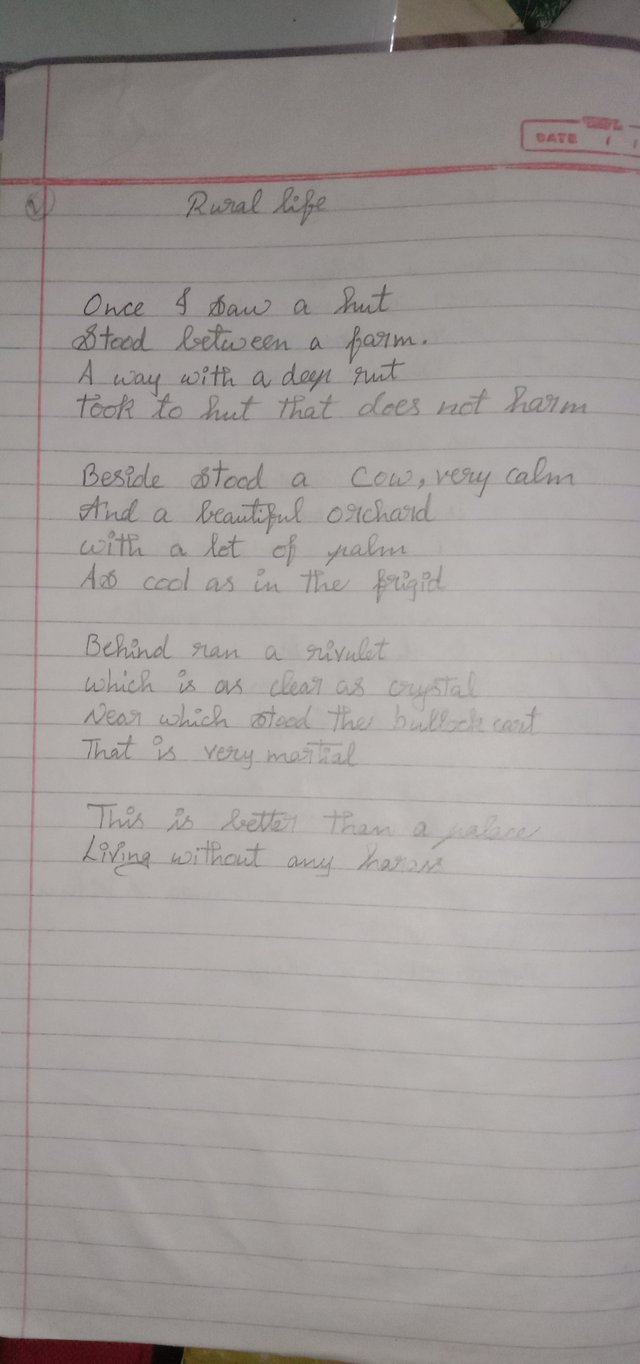 Rural life
DATE
Once I saw a hut
Stood between a farm.
A way with a deep rut
Took to hut that does not harm
Beside stood a cow, very calm
And a beautiful orchard
with a lot of palm
As cool as in the frigid
Behind ran a rivulet
which is as clear as crystal
Near which stood the bullock cart
That is very martial
This is better than a palace
Living without any harass